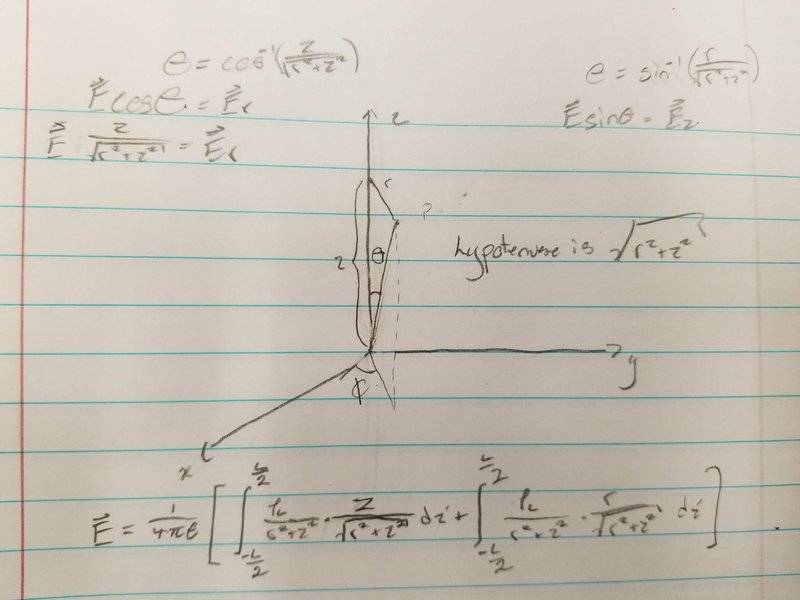 θ = cos⁻¹(z/√(r²+z²))
θ = sin⁻¹(r/√(r²+z²))
E⃗cosθ = E⃗r
E⃗sinθ = E⃗z
E⃗ z/√(r²+z²) = E⃗r
z
r
P
z
θ
hypotenuse is √(r²+z²)
y
ϕ
x
E⃗ = 1/(4πε) [∫_{-L/2}^{L/2} ρL/(r²+z²) · z/√(r²+z²) dz' + ∫_{-L/2}^{L/2} ρL/(r²+z²) · r/√(r²+z²) dz']